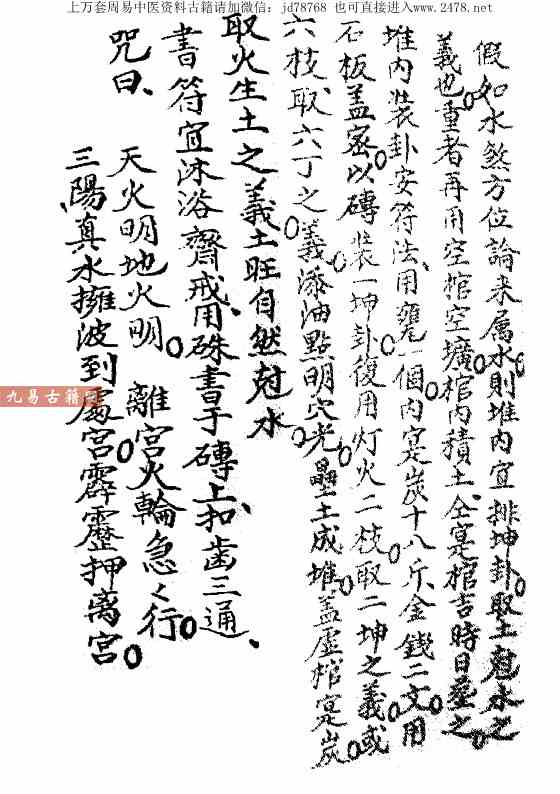 上万套周易中医资料古籍请加微信：jd78768 也可直接进入www.2478.net
假如水煞方位論来属水則堆内宜排坤卦取土尅水之
義也重者再用空棺空壙棺内積土仝寔棺吉時日塟之
堆内装卦安符法用甕一個内寔炭十八斤金錢二文用
石板盖密以磚装一坤卦復用灯火二枝取二坤之義或
六枝取六丁之義添油點明穴光壘土成堆盖虚棺寔炭
取火生土之義土旺自然尅水
書符宜沐浴齋戒用硃書于磚上扣歯三通
咒曰
天火明地火明 離宮火輪急々行
三陽真水擁波到處宮霹靂押离宮
九易古籍